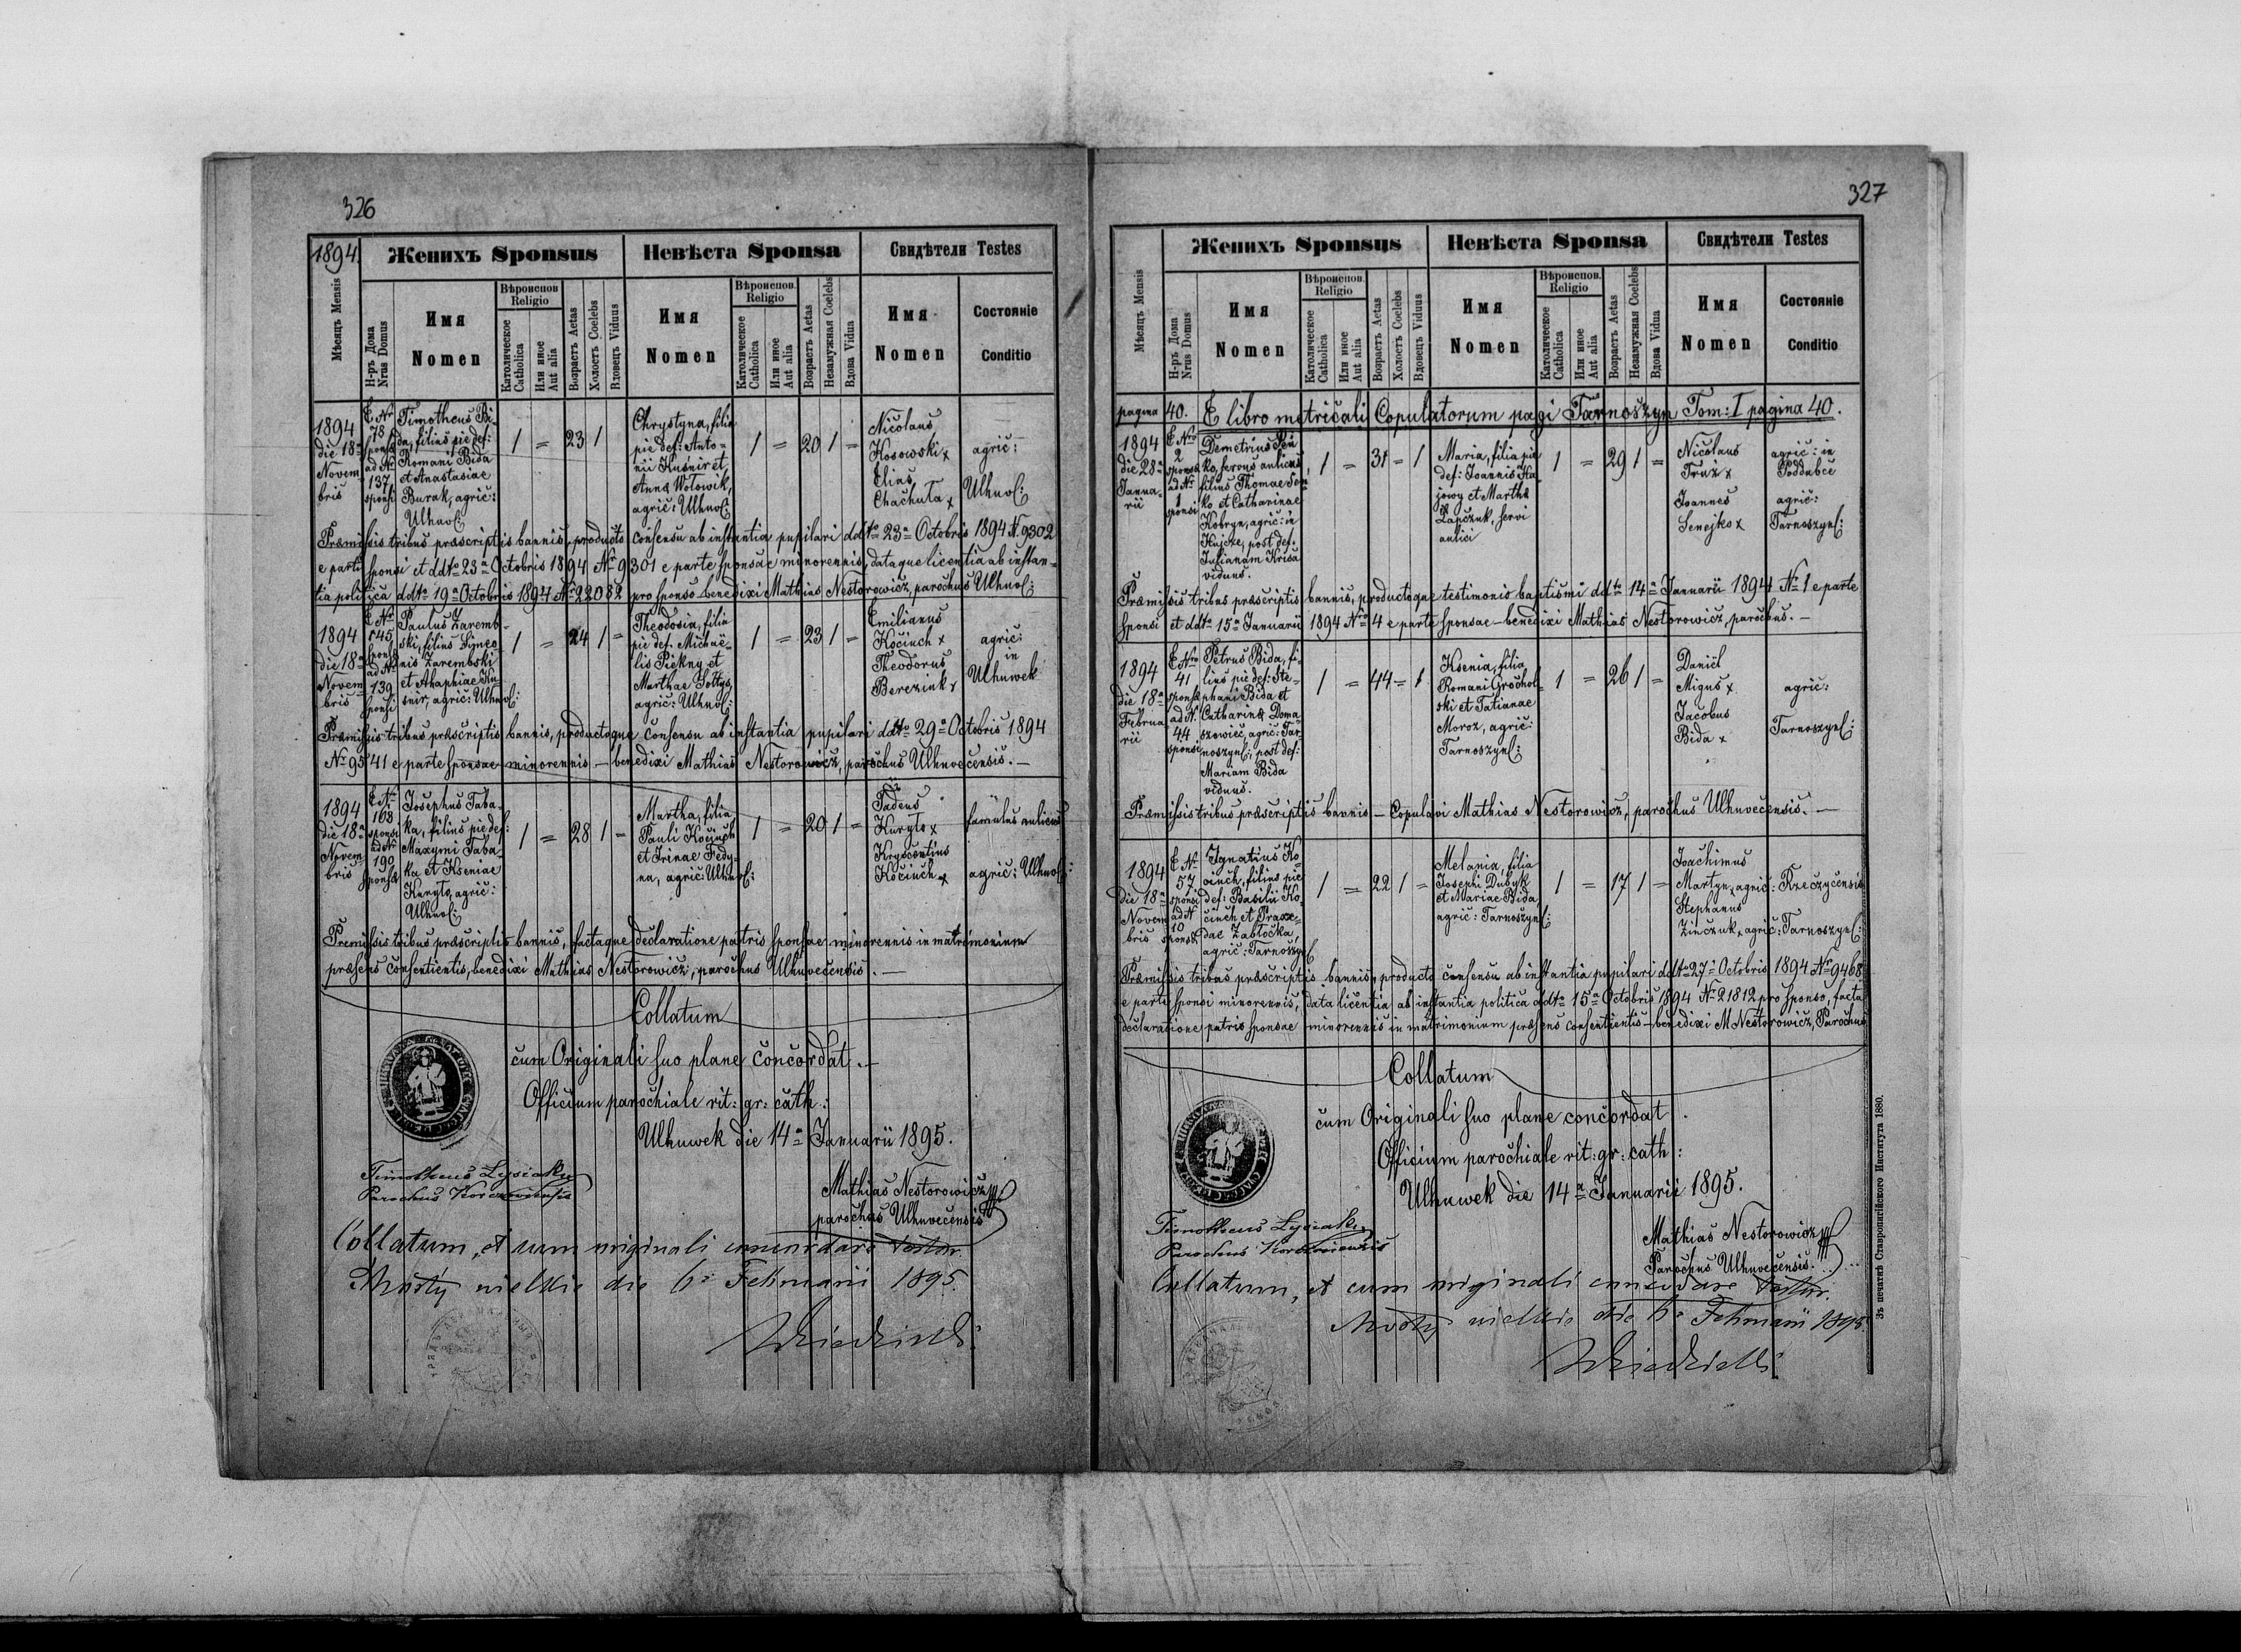 326
1894.
Женихъ Sponsus
Невѣста Sponsa
Свидѣтели Testes
Мѣсяцъ Mensis
Н-ръ Дома
Nrus Domus
Имя
Nomen
Вѣроиспов.
Religio
Католическое
Catholica
Или иное
Aut alia
Возрастъ Aetas
Холостъ Coelebs
Вдовецъ Viduus
Имя
Nomen
Вѣроиспов.
Religio
Католическое
Catholica
Или иное
Aut alia
Возрастъ Aetas
Незамужная Coelebs
Вдова Vidua
Имя
Nomen
Состояніе
Conditio
1894
die 18ª
Novem
bris
E Nº
78
sponsæ
ad Nº
137
sponsi
Timotheus Bi-
da, filius pie def:
Romani Bida
et Anastasiae
Burak, agric:
Uhnov:
1 = 23 1
Chrystyna, filia
pie def: Anto-
nii Kuśnir et
Anna Wołowik,
agric: Ulhuv:
1 = 20 1 =
Nicolaus
Kosowski x
Elias
Chachuła x
agric:
Ulhuv:
Præmissis tribus præscriptis bannis, producto consensu ab instantia pupilari ddto 23ª Octobris 1894 N. 9302
e parte sponsi et ddto 23ª Octobris 1894 Nº 9301 e parte sponsae minorennis, dataque licentia ab instan-
tia politica ddto 19ª Octobris 1894 Nº 22082 pro sponso benedixi Mathias Nestorowicz, parochus Ulhuv:
1894
die 18ª
Novem
bris
E Nº
545
sponsæ
ad Nº
139
sponsi
Paulus Zaremb-
ski, filius Simeo-
nis Zarembski
et Ahaphiae Ku
śnir, agric: Ulhuv:
1 = 24 1 =
Theodosia, filia
pie def. Michaë-
lis Piekny et
Marthae Sołtys,
agric: Ulhuv:
1 = 23 1 =
Emilianus
Kocinch x
Theodorus
Berezink x
agric:
in
Ulhuwek
Præmissis tribus præscriptis bannis, productoque consensu ab instantia pupilari ddto 29ª Octobris 1894
Nº 9541 e parte sponsae minorennis – benedixi Mathias Nestorowicz, parochus Ulhuvecensis. –
1894
die 18ª
Novem-
bris
E Nº
163
sponsi
ad Nº
190
sponsæ
Josephus Taba-
ka, filius pie def:
Maxymi Taba-
ka et Kseniae
Kuryło, agric:
Ulhuv:
1 = 28 1 =
Martha, filia
Pauli Kocinch
et Irinae Fedy-
na, agric: Ulhuv:
1 = 20 1 =
Tadeus
Kuryło x
Krysoontius
Kocinch x
famulus aulicus
agric: Ulhuv:
Præmissis tribus præscriptis bannis, factaque declaratione patris sponsae minorennis in matrimonium
præsens consentientis, benedixi Mathias Nestorowicz, parochus Ulhuvecensis. –
Collatum
cum Originali suo plane concordat. –
Officium parochiale rit: gr: cath:
Ulhuwek die 14ª Januarii 1895.
Timotheus Lysiak
Parochus Korczoviensis
Mathias Nestorowicz
parochus Ulhuvecensis
Collatum, et cum originali concordare testor.
Mosty wielkie die 6ª Februarii 1895.
327
Женихъ Sponsus
Невѣста Sponsa
Свидѣтели Testes
Мѣсяцъ Mensis
Н-ръ Дома
Nrus Domus
Имя
Nomen
Вѣроиспов.
Religio
Католическое
Catholica
Или иное
Aut alia
Возрастъ Aetas
Холостъ Coelebs
Вдовецъ Viduus
Имя
Nomen
Вѣроиспов.
Religio
Католическое
Catholica
Или иное
Aut alia
Возрастъ Aetas
Незамужная Coelebs
Вдова Vidua
Имя
Nomen
Состояніе
Conditio
pagina 40. E libro metricali Copulatorum pagi Tarnoszyn Tom: I pagina 40.
1894
die 28ª
Janua-
rii
E Nro
2
sponsæ
ad Nº
1
sponsi
Demetrius Sen
ko, servus aulicus,
filius Thomae Sen
ko et Catharinae
Kobryn, agric: in
Kujcze, post def.
Julianam Krisa
viduus.
1 = 31 = 1
Maria, filia pie
def: Joannis Ha-
jowy et Martha
Łapczuk, servi
aulici
1 = 29 1 =
Nicolaus
Truż x
Joannes
Senejko x
agric: in
Poddubce
agric:
Tarnoszyn:
Præmissis tribus præscriptis bannis, productoque testimonio baptismi ddto 14ª Januarii 1894 Nº 1 e parte
sponsi et ddto 15ª Januarii 1894 Nro 4 e parte sponsae – benedixi Mathias Nestorowicz, parochus. –
1894
die 18ª
Februa
rii
E Nro
41
sponsæ
ad N.
44
sponsi
Petrus Bida, fi-
lius pie def: Ste-
phani Bida et
Catharina Doma-
szowiec, agric: Tar-
noszyn:, post def:
Mariam Bida
viduus.
1 = 44 = 1
Ksenia, filia
Romani Grochol-
ski et Tatianae
Moroz, agric:
Tarnoszyn:
1 = 26 1 =
Daniel
Migus x
Jacobus
Bida x
agric:
Tarnoszyn:
Præmissis tribus præscriptis bannis – Copulavi Mathias Nestorowicz, parochus Ulhuvecensis. –
1894
die 18ª
Novem
bris
E Nº
57
sponsi
ad N
10
sponsæ
Ignatius Ko-
cinch, filius pie
def: Basilii Ko-
cinch et Praxe-
dae Zabłocka,
agric: Tarnoszyn
1 = 22 1 =
Melania, filia
Josephi Dubyk
et Mariae Bida,
agric: Tarnoszyn:
1 = 17 1 =
Joachimus
Martyn, agric: Rzeczycensis
Stephanus
Zinczuk x agric: Tarnoszyn:
Præmissis tribus præscriptis bannis, producto consensu ab instantia pupilari ddto 27ª Octobris 1894 Nº 9468
e parte sponsi minorennis, data licentia ab instantia politica ddto 15ª Octobris 1894 Nº 21812 pro sponso, facta
declaratione patris sponsae minorennis in matrimonium præsens consentientis – benedixi M Nestorowicz, Parochus
Collatum
cum Originali suo plane concordat.
Officium parochiale rit: gr: cath:
Ulhuwek die 14ª Januarii 1895.
Timotheus Lysiak
Parochus Korczoviensis
Mathias Nestorowicz
Parochus Ulhuvecensis.
Collatum, et cum originali concordare testor.
Mosty wielkie die 6ª Februarii 1895.
Зъ печатнѣ Ставропигійского Института 1880.